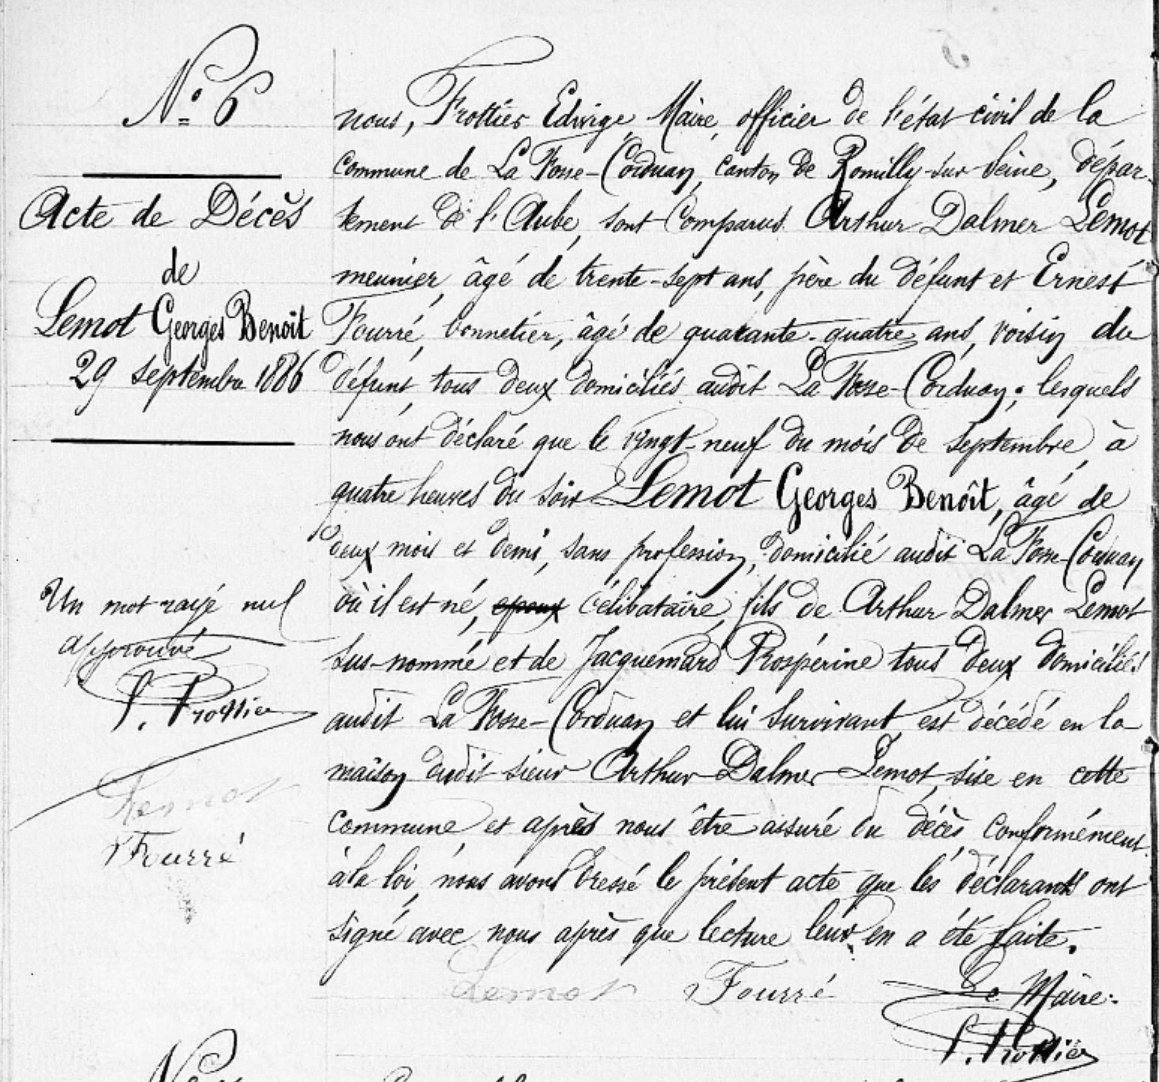 N° 6
Acte de Décès
de
Lemot Georges Benoit
29 septembre 1886
nous, Frottier Edwige, Maire, officier de l'état civil de la
commune de La Fosse-Corduan, canton de Romilly-sur-Seine, dépar-
tement de l'Aube, sont comparus Arthur Dalmer Lemot
meunier, âgé de trente-sept ans, père du défunt et Ernest
Fourré, bonnetier, âgé de quarante-quatre ans, voisin du
défunt, tous deux domiciliés audit La Fosse-Corduan; lesquels
nous ont déclaré que le vingt-neuf du mois de septembre, à
quatre heures du soir Lemot Georges Benoît, âgé de
deux mois et demi, sans profession, domicilié audit La Fosse-Corduan
où il est né, epoux célibataire, fils de Arthur Dalmer Lemot
sus-nommé et de Jacquemard Prospérine tous deux domiciliés
audit La Fosse-Corduan et lui survivant est décédé en la
maison dudit sieur Arthur Dalmer Lemot, sise en cette
commune, et après nous être assuré du décès, conformément
à la loi, nous avons dressé le présent acte que les déclarants ont
signé avec nous après que lecture leur en a été faite.
Lemot Fourré Le Maire
Frottier
Un mot rayé nul
approuvé
Frottier
Lemot
Fourré